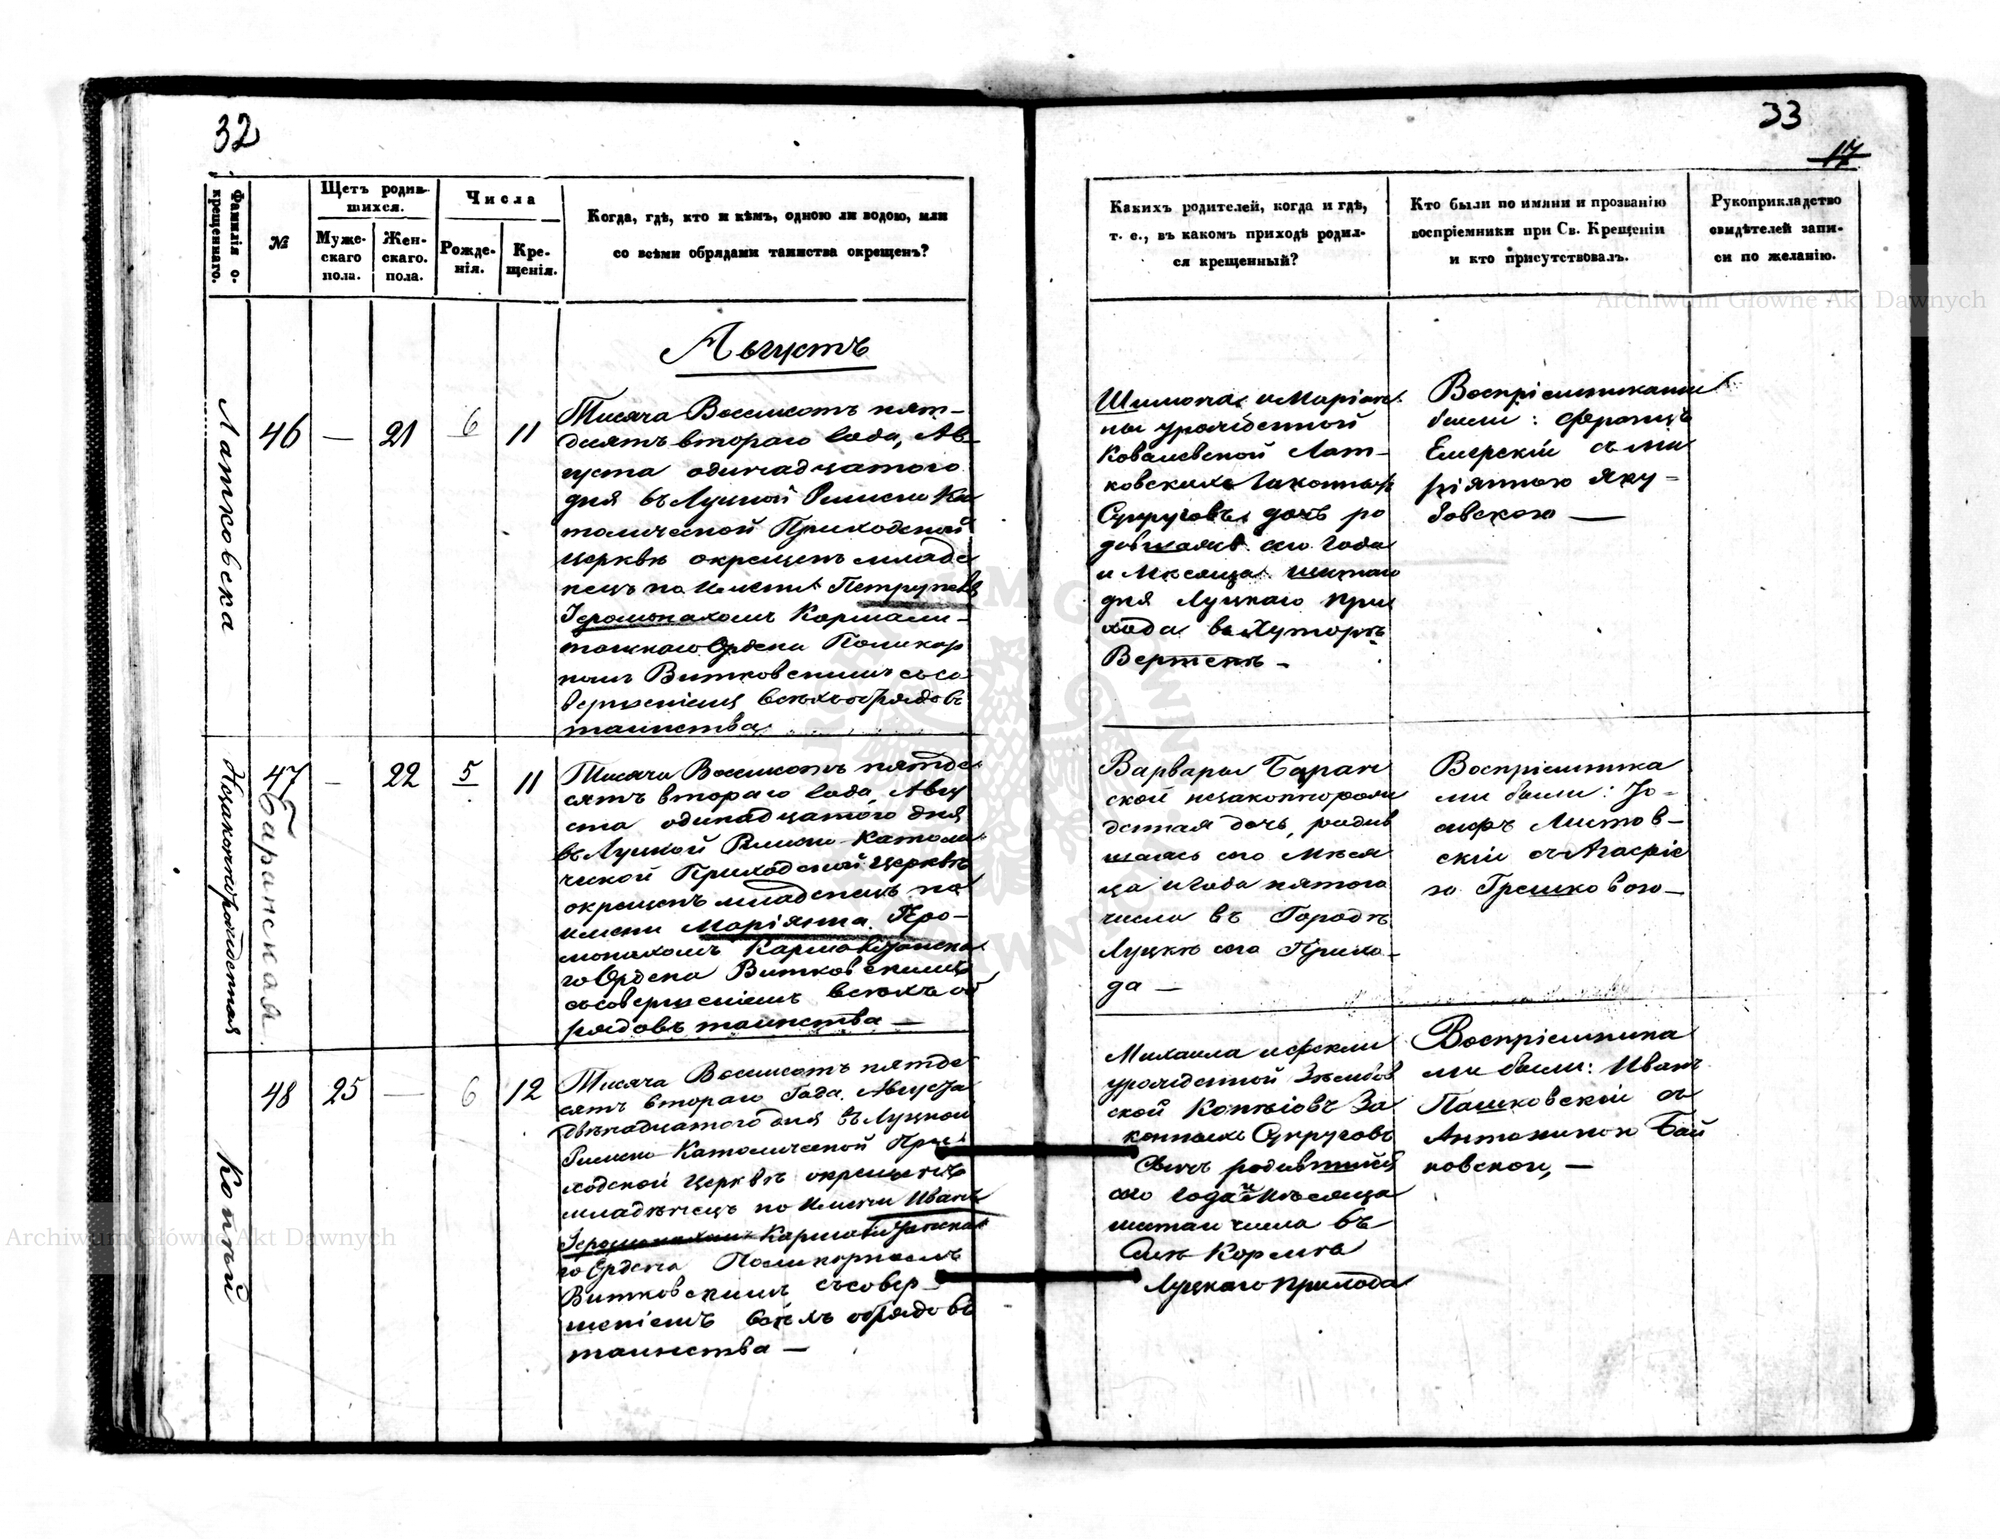 32
Фамилія о-
крещеннаго.
№
Щетъ родив-
шихся.
Муже-
скаго
пола.
Жен-
скаго.
пола.
Числа
Рожде-
нія.
Кре-
щенія.
Когда, гдѣ, кто и кѣмъ, одною ли водою, или
со всѣми обрядами таинства окрещенъ?
Августъ
Латковска
46
—
21
6
11
Тисяча Восемсотъ пят-
десятъ втораго Года, Ав-
густа одинадцатого
дня въ Луцкой Римско Ка
толической Приходской
церквѣ окрещенъ младе
нецъ по имени
Іеромонахомъ Кармели-
тскаго Ордена Поликар
помъ Витковскимъ съ со
вершеніемъ всѣхъ обрядовъ
таинства
Незаконнорожденная
Баранская
47
—
22
5
11
Тисяча Восемсотъ пятде
сятъ втораго Года, Авгу
ста одинадцатого дня
въ Луцкой Римско Католи
ческой Приходской церквѣ
окрещенъ младенецъ по
имени Маріянна
монахомъ
го Ордена Витковскимъ
съ совершеніемъ всѣхъ об
рядовъ таинства —
Копный
48
25
—
6
12
Тисяча Восемсотъ пятде
сятъ втораго Года. Августа
двѣнадцатого дня въ Луцкой
Римско Католической При
ходской церквѣ окрещенъ
младѣнецъ по имени Иванъ
Іеромонахомъ
го Ордена Поликарпомъ
Витковскимъ съ совер-
шеніемъ всѣхъ обрядовъ
таинства —
33
17
Какихъ родителей, когда и гдѣ,
т. е., въ какомъ приходѣ родил-
ся крещенный?
Кто были по имяни и прозванію
воспріемники при Св. Крещеніи
и кто присутствовалъ.
Рукоприкладство
свидѣтелей запи-
си по желанію.
Шимона и Маріан
ны урожденной
Ковалевской Лат-
ковскихъ Законныхъ
Супруговъ дочь ро
дившаяся сего Года
и Мѣсяца шестаго
дня Луцкаго при
хода въ Хуторѣ
Вертепъ —
Воспріемниками
были: Францъ
съ Ма
ріянною Яку-
бовскою —
Варвары Баран
ской незаконнорож
денная дочь, родив
шаясь сего Мѣся
ца и Года пятого
числа въ Городѣ
Луцкѣ сего Прихо-
да —
Воспріемника
ми были: Іо-
сифъ Листов-
скій съ
ю Грешковою —
Михаила и
урожденной
ской Копніовъ За
конныхъ Супруговъ
Сынъ родившійся
сего Года и Мѣсяца
шестаго числа въ
Луцкаго Прихода
Воспріемника
ми были: Иванъ
Пашковскій съ
Антониною Бай
ковскою, —
Archiwum Główne Akt Dawnych
Archiwum Główne Akt Dawnych